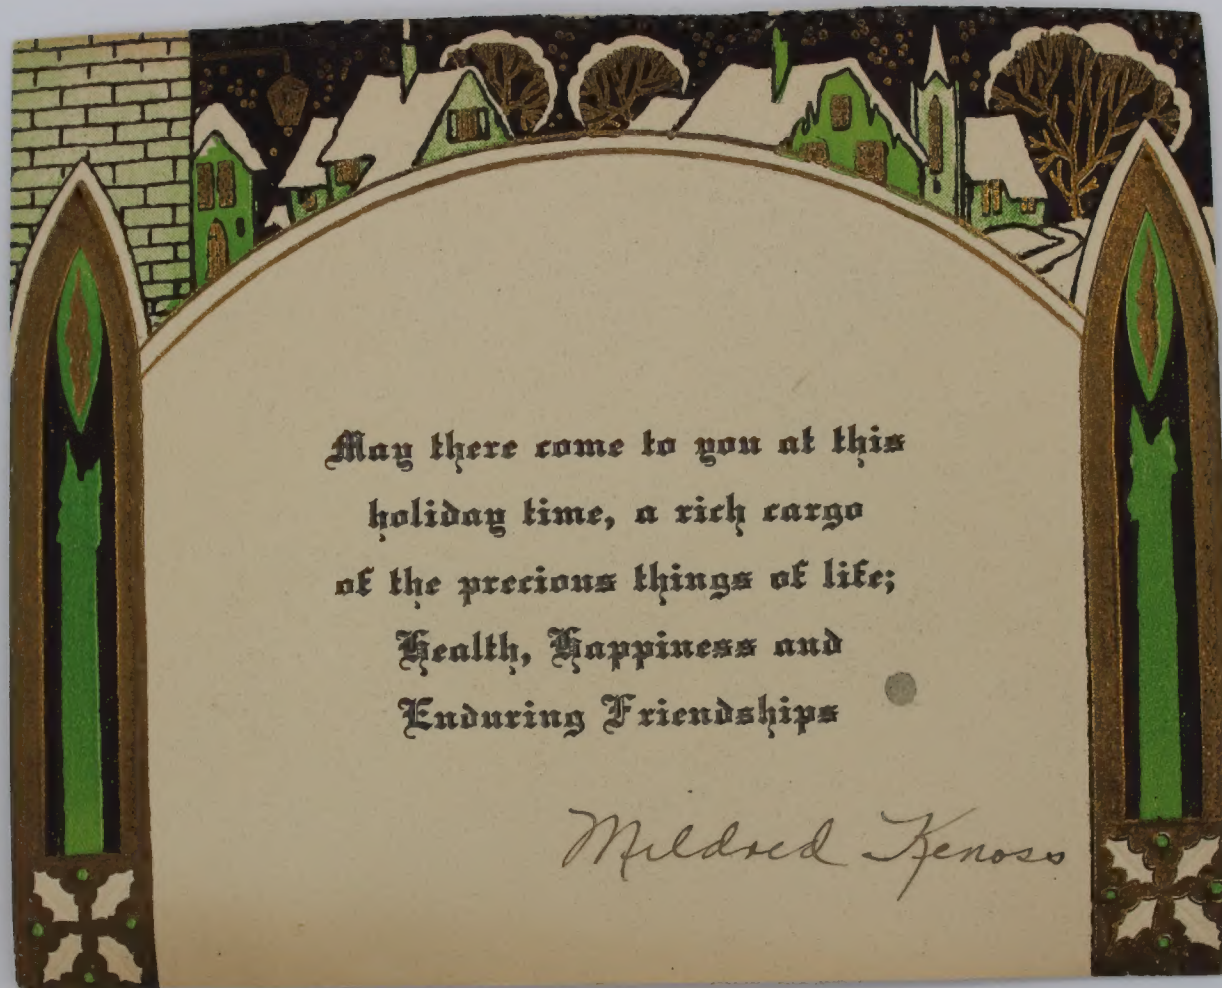 May there come to you at this
holiday time, a rich cargo
of the precious things of life;
Health, Happiness and
Enduring Friendships
Mildred Kenoss